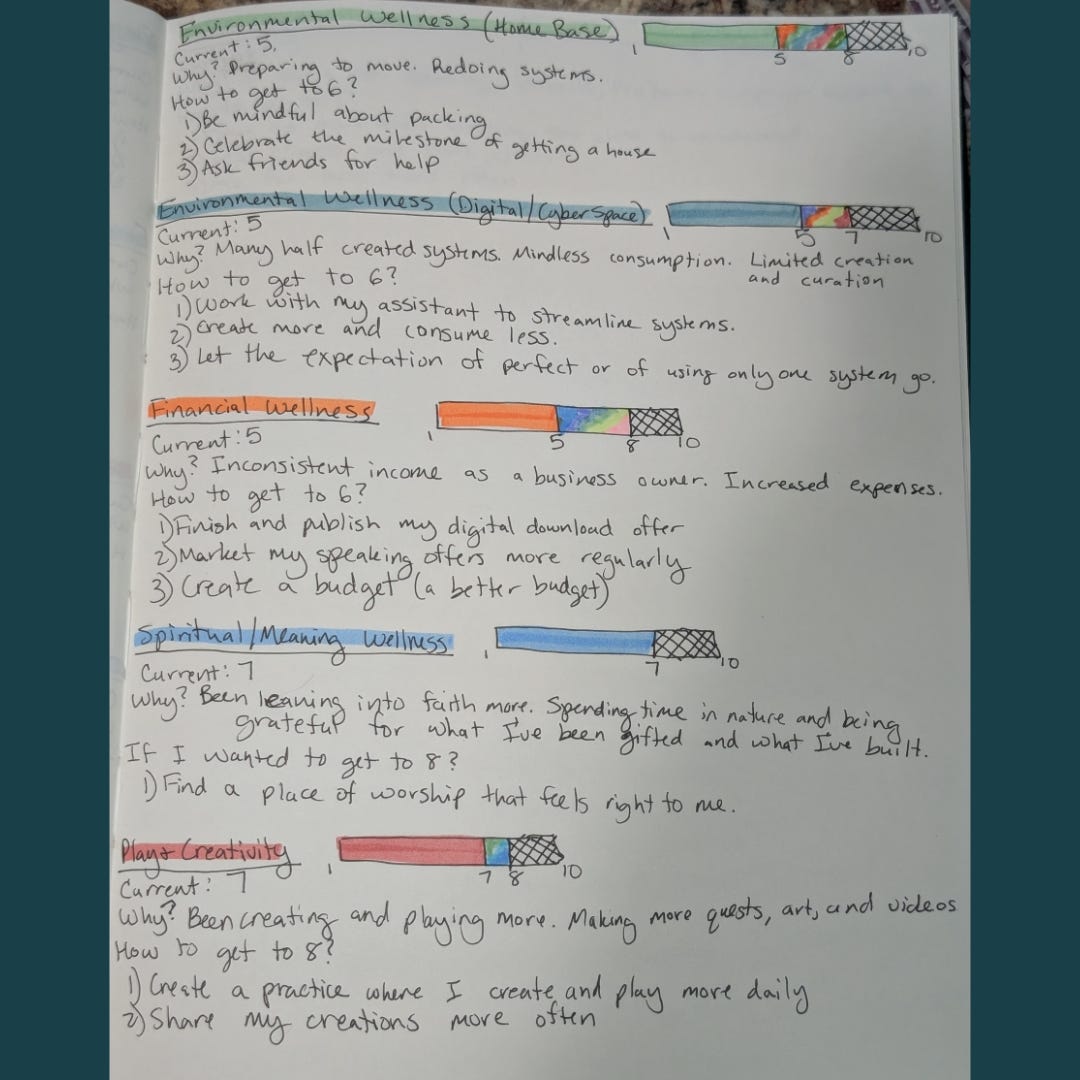 Environmental Wellness (Home Base)
1 5 8 10
Current: 5.
Why? Preparing to move. Redoing systems.
How to get to 6?
1) Be mindful about packing
2) Celebrate the milestone of getting a house
3) Ask friends for help
Environmental Wellness (Digital/Cyber Space)
1 5 7 10
Current: 5
Why? Many half created systems. Mindless consumption. Limited creation
and curation
How to get to 6?
1) Work with my assistant to streamline systems.
2) Create more and consume less.
3) Let the expectation of perfect or of using only one system go.
Financial Wellness
1 5 8 10
Current: 5
Why? Inconsistent income as a business owner. Increased expenses.
How to get to 6?
1) Finish and publish my digital download offer
2) Market my speaking offers more regularly
3) Create a budget (a better budget)
Spiritual/Meaning Wellness
1 7 10
Current: 7
Why? Been leaning into faith more. Spending time in nature and being
grateful for what I've been gifted and what I've built.
If I wanted to get to 8?
1) Find a place of worship that feels right to me.
Play + Creativity
1 7 8 10
Current: 7
Why? Been creating and playing more. Making more quests, art, and videos
How to get to 8?
1) Create a practice where I create and play more daily
2) Share my creations more often